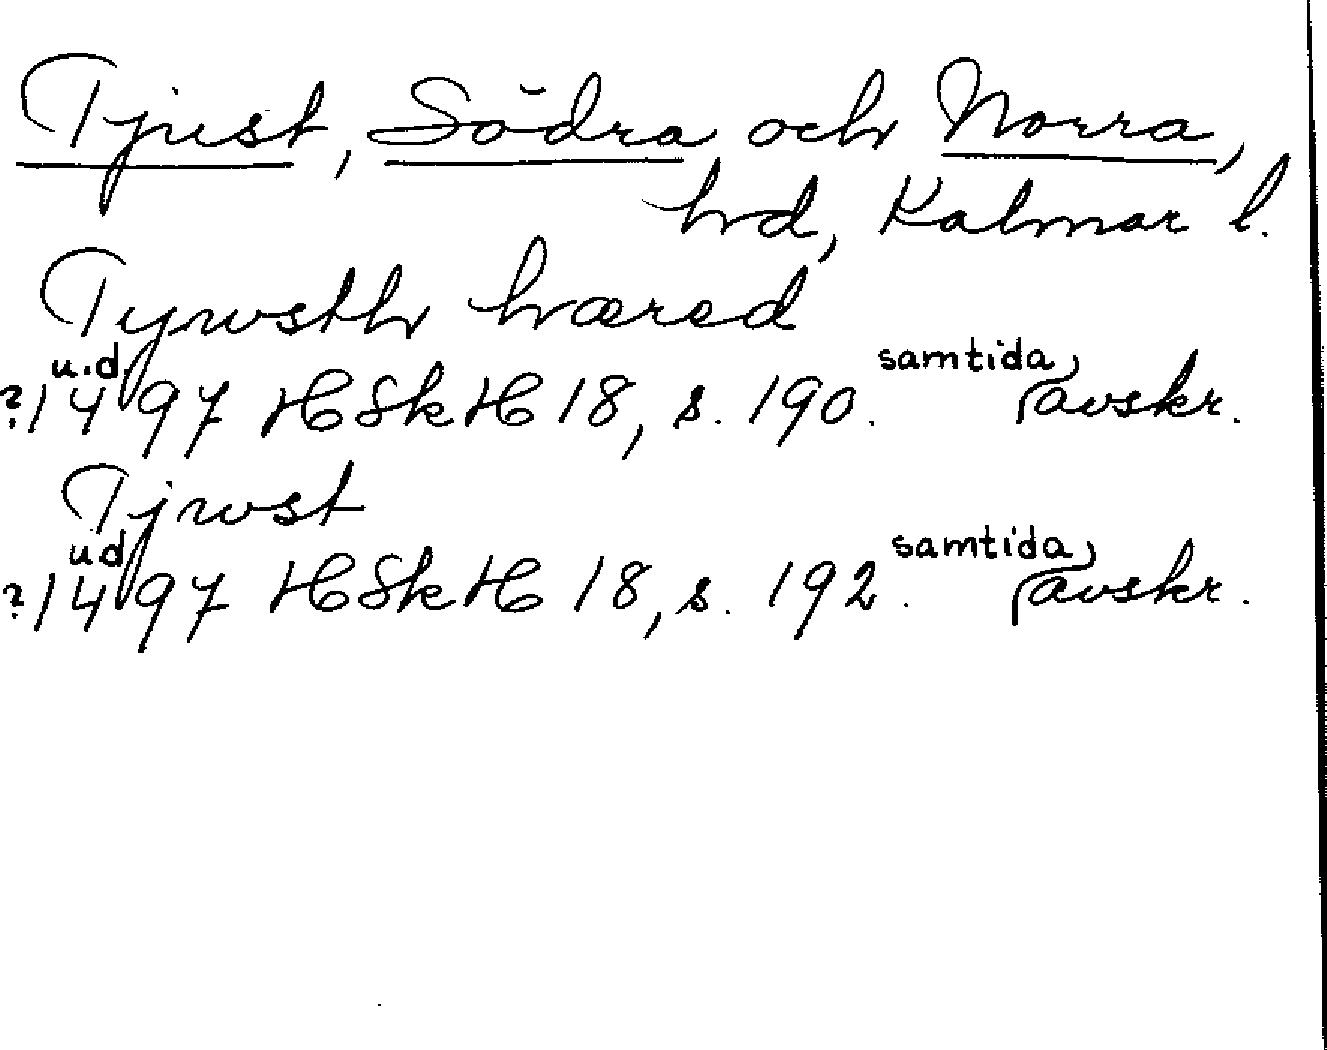 Tjust, Södra och Norra,
hd, Kalmar l.
Tywsth hæred
u.d. samtida
?1497 HSkH 18, s. 190. avskr.
Tjwst
u.d. samtida
?1497 HSkH 18, s. 192. avskr.